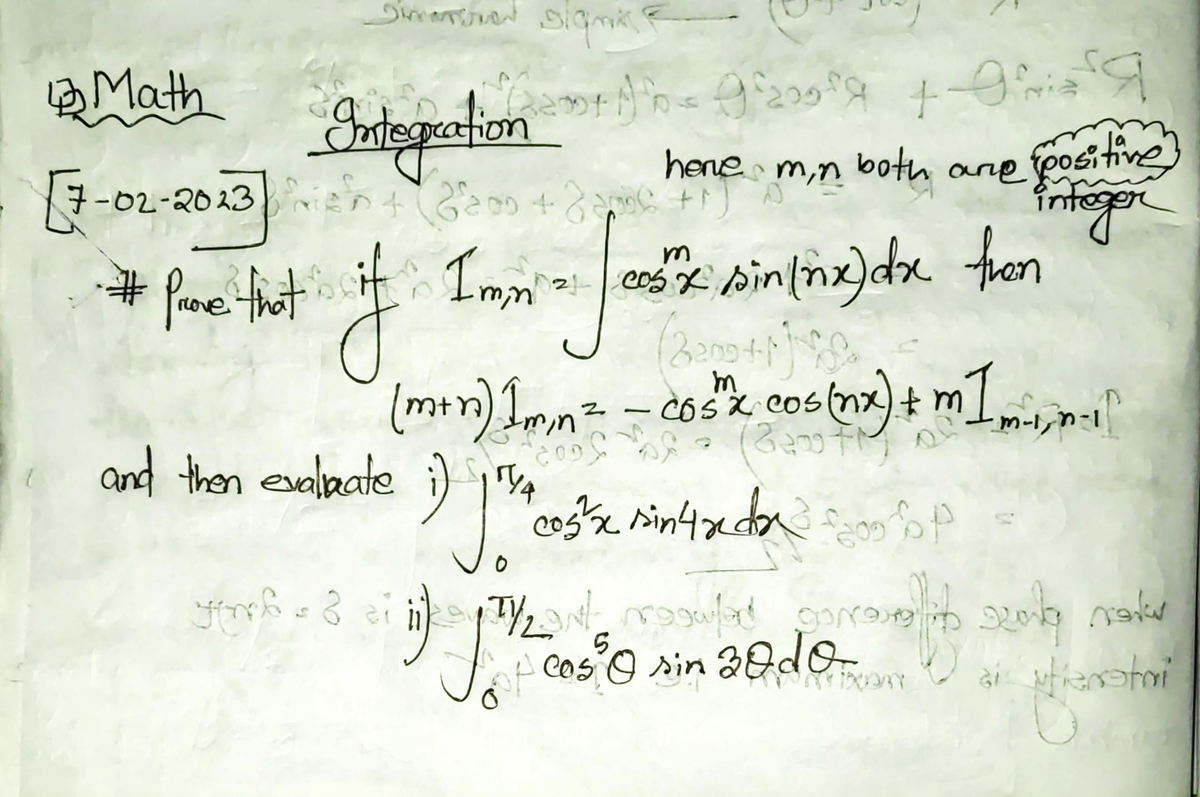 Math
Integration
[7-02-2023]
here m,n both are positive integer
# Prove that if I_{m,n} = ∫ cos^m x sin(nx) dx then
(m+n) I_{m,n} = - cos^m x cos(nx) + m I_{m-1, n-1}
and then evaluate i) ∫_0^{π/4} cos^2 x sin4x dx
ii) ∫_0^{π/2} cos^5 θ sin 3θ dθ